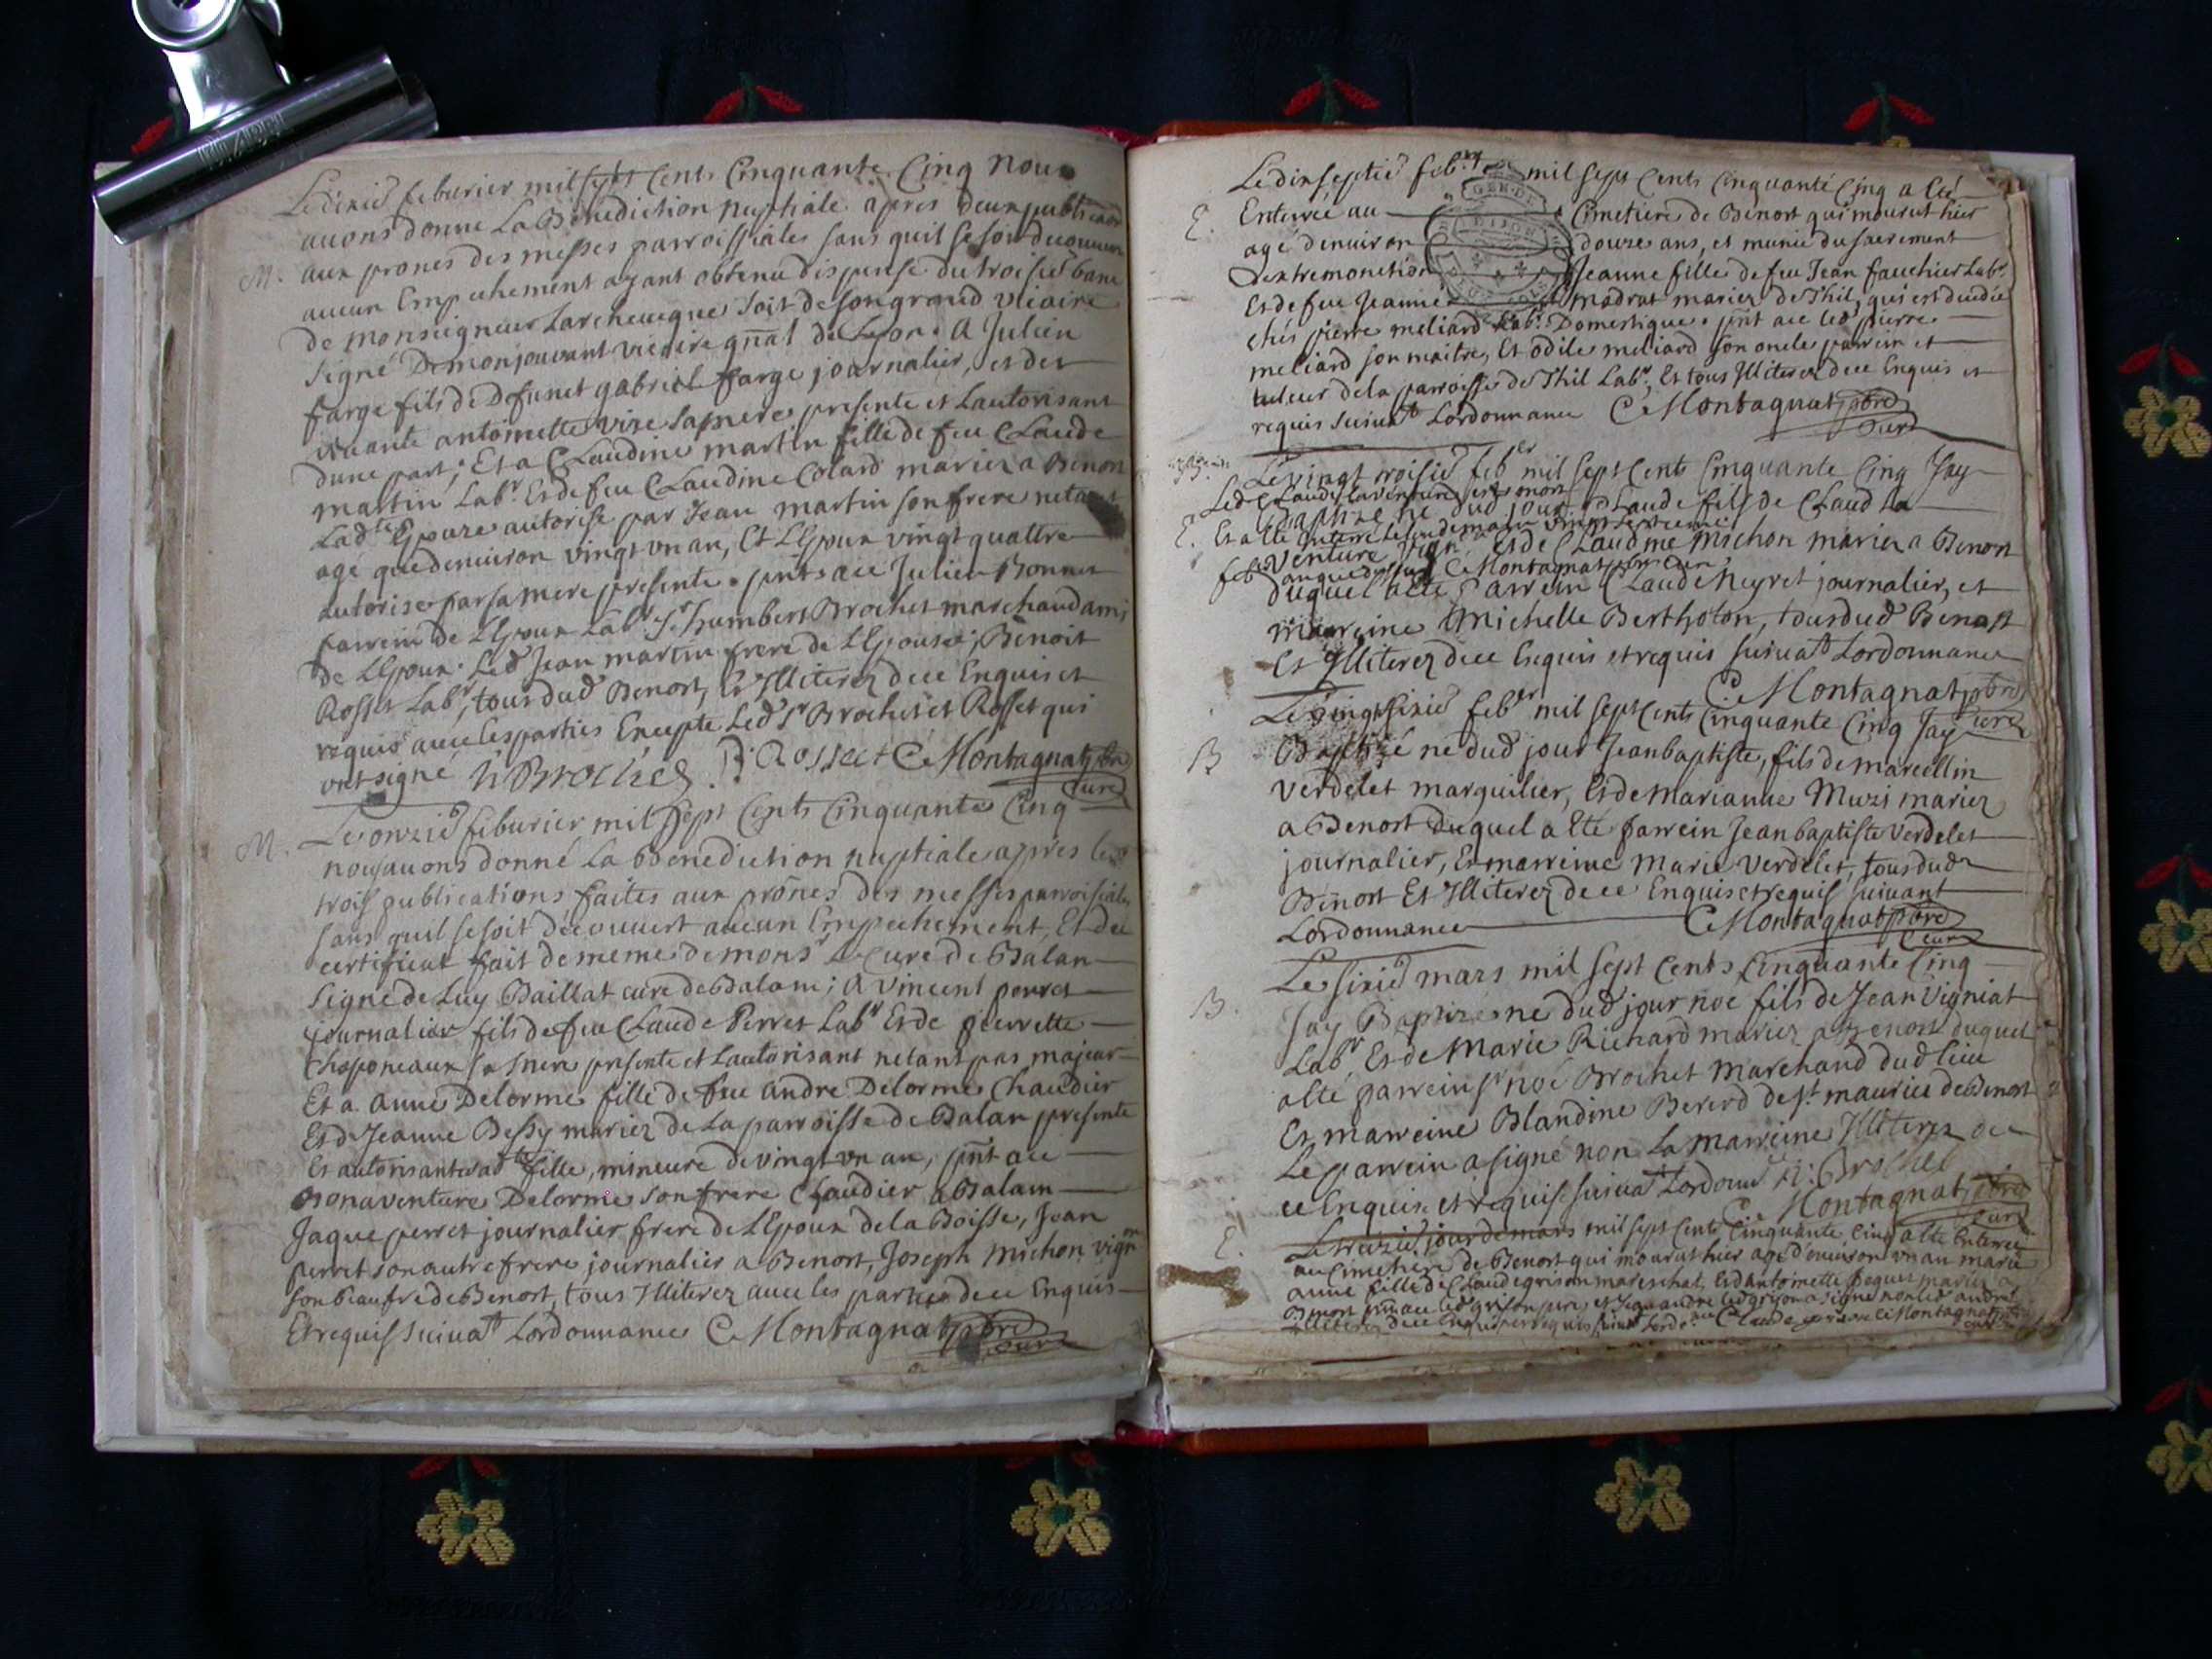 Le dixie feburier mil sept Cents Cinquante Cinq Nous
M. auons donne La Benediction nuptiale apres deux publica͠on
aux prones des messes parroissiales sans quil se soit decouuert
aucun Empechement ayant obtenu dispense du troisie banc
de monseigneur Larcheuegue soit de son grand vicaire
signé Demonjouvant vicaire gn͠al de Lyon. A Julien
farge fils de defunct gabriel farge journalier, et de
viuante antoinette vire sa mere presente et Lautorisant
dune part; Et a Claudine martin fille de feu Claude
martin Labr. Et de feu Claudine Colard mariez a Benon
Lad.te Epouze autorise par Jean martin son frere netant
age que denuiron vingt vn an, Et LEpoux vingt quattre
autorise par sa mere presente. pn͠ts a ce Julien Bonnet
parrein de LEpoux Labr. Sr. humbert Brochet marchand ami
de LEpoux. Led Jean martin frere de LEpousée; Benoit
Rosset Labr, tous dud Benost, Et Illiterez de ce Enquis et
requis auec les parties Excepte Led Sr Brochet et Rosset qui
ont signé h Brochet. B: Rosset C Montagnat pbre
Curé
M. Le onzie feburier mil sept Cents Cinquante Cinq
nous auons donné La Benediction nuptiale apres les
trois publications faites aux prônes des messes parroissiales
sans quil se soit découuert aucun Empechement, Et du
certificat fait de meme de monsr Le Curé de Balan
Signé de Luy Baillat curé de Balam; A Vincent perret
journalier fils de feu Claude Perret Labr Et de pierrette
Chaponeaux sa mere presente et Lautorisant netant pas majeur
Et a anne Delorme fille de feu andre Delorme Chaudier
Et de Jeanne Bessy mariez de La parroisse de Balan presente
Et autorisant sad.te fille, mineure de vingt vn an, pn͠t a ce
Bonaventure Delorme son frere Chaudier a Balam
Jaque perret journalier frere de LEpoux de la Boisse, Jean
perret son autre frere journalier a Benost, Joseph Michon vign
son beaufre de Benost, tous Illiterez auec les parties de ce Enquis
Et requis suiuat Lordonnance C Montagnat pbre
Curé
Le dixseptie feb.er mil sept Cents Cinquante Cinq a Eté
E. Enterrée au Cimetiere de Benost qui mourut hier
agé denuiron douze ans, et munie du sacrement
dextremonction Jeanne fille de feu Jean fauchier Labr.
Et de feue Jeanne madrat mariez de Thil, qui est decedée
chés pierre meliard Labr. Domestique. pn͠t a ce led pierre
meliard son maitre, Et odile meliard son oncle parrein et
tuteur de la parroisse de Thil Labr, Et tous Illiterez de ce Enquis et
requis suiuat Lordonnance C Montagnat pbre
Curé
B. Le vingt troisie feber mil sept Cents Cinquante Cinq Jay
Led Claude Lauenture est mort
Baptizé né dud jour Claude fils de Claud La
E. Et a Eté Enterré Lesendemain vingt septieme
Venture vign. et de Claudine Michon mariez a Benost
feb. C Montagnat pbre Curé
duquel a Eté Parrein Claude Neyret journalier, et
marreine Michelle Bertholon, tous dud Benost
Et Illiterez de ce Enquis et requis suiuat Lordonnance
C Montagnat pbre
Curé
Le Vingt sixie feber mil sept Cents Cinquante Cinq Jay
B Baptizé né dud jour Jean baptiste, fils de marcellin
Verdelet marguilier, Et de Marianne Muzi mariez
a Benost Duquel a Eté parrein Jean baptiste Verdelet
journalier, Et marreine Marie Verdelet, tous dud
Benost Et Illiterez de ce Enquis et requis suiuant
Lordonnance C Montagnat pbre
Curé
Le sixie mars mil sept Cents Cinquante Cinq
B. Jay Baptizé né dud jour noé fils de Jean Vigniat
Labr Et de Marie Richard mariez a Benost duquel
a Eté parrein Sr noé Brochet Marchand dud lieu
Et marreine Blandine Bererd de St. maurice de Benost
Le parrein a signé non La marreine Illiterez de
ce Enquise et requise suiuat Lordonn N: Brochet
C Montagnat pbre
Curé
E. Le treizie jour de mars mil sept Cents Cinquante Cinq a Eté Enterrée
au Cimetiere de Benost qui mourut hier age denuiron vn an marie
anne fille de Claude grison mareschal, Et dantoinette paquet mariez a
Benost pn͠t a ce led grison pere, et andre led grison a signe non led andre
Illiterez de ce Enquis et requis suiuat Lordo.nce Claude grison C Montagnat pbre
curé